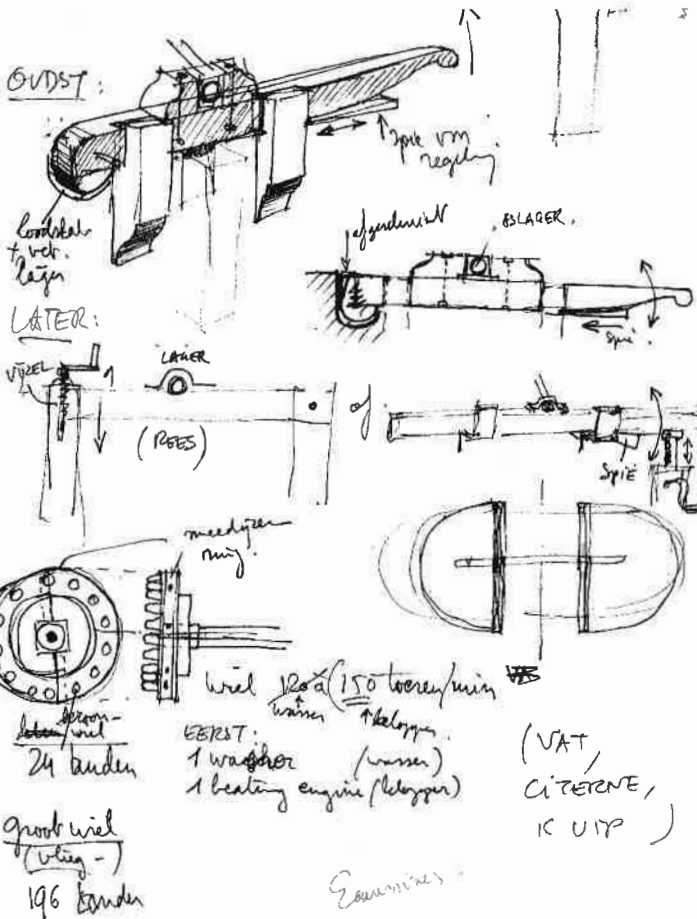 OUDST:
spie vm
regeling
loodstab
+ vet.
lager
afgeschuint
ASLAGER.
spie.
LATER:
VIJZEL
LAGER
(REES)
of.
SPIE
ring.
wiel 120 à (150 toeren/min
wasser klopper.
kroon-
wiel
24 tanden
EERST:
1 washer (wasser)
1 beating engine (klopper)
(VAT,
CITERNE,
KUIP)
groot wiel
(vlieg-)
196 tanden